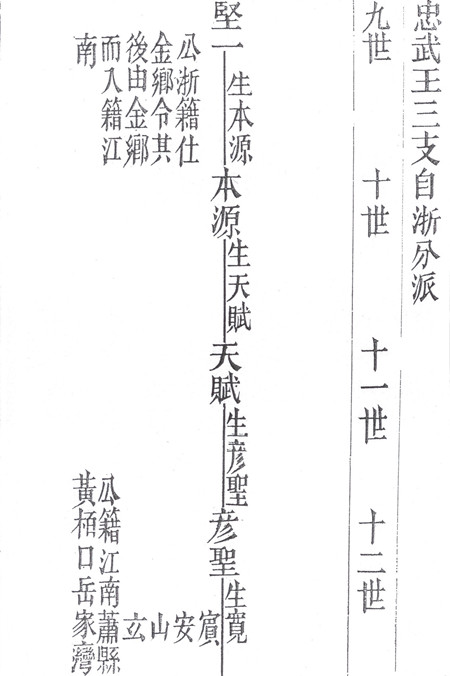 忠武王三支自浙分派
九世
十世
十一世
十二世
堅一
生本源
本源
生天賦
天賦
生彦聖
彦聖
生寬
賔
安
山
玄
公浙籍仕
金鄉令其
後由金鄉
而入籍江
南
公籍江南蕭縣
黃栢口岳家灣